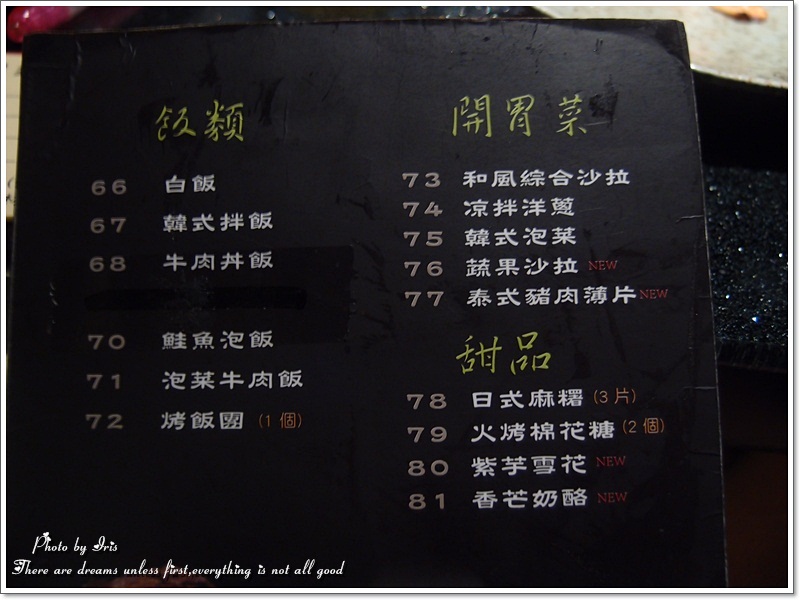 飯類
66 白飯
67 韓式拌飯
68 牛肉丼飯
70 鮭魚泡飯
71 泡菜牛肉飯
72 烤飯糰 (1 個)
開胃菜
73 和風綜合沙拉
74 凉拌洋蔥
75 韓式泡菜
76 蔬果沙拉 NEW
77 泰式豬肉薄片 NEW
甜品
78 日式麻糬 (3 片)
79 火烤棉花糖 (2 個)
80 紫芋雪花 NEW
81 香芒奶酪 NEW
Photo by Iris
There are dreams unless first,everything is not all good